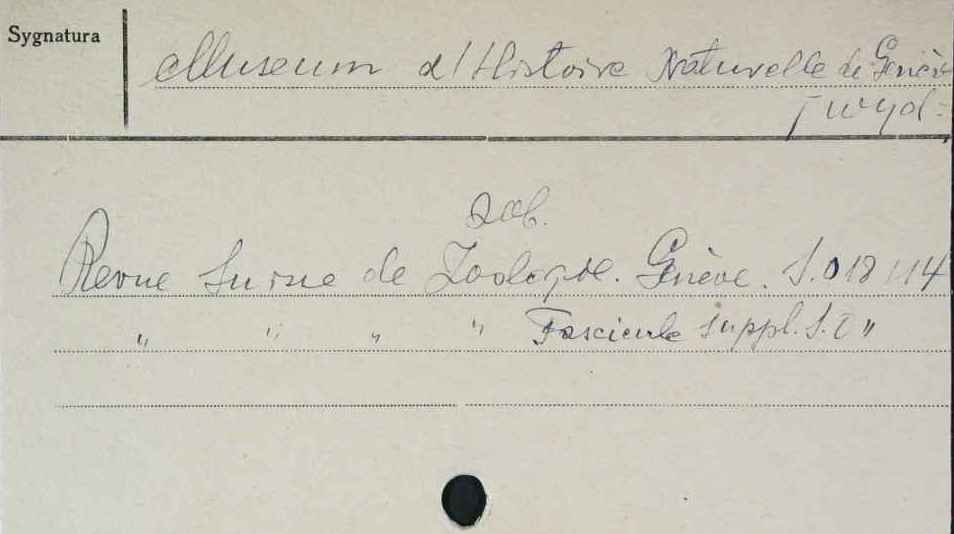 Sygnatura
Museum d'Histoire Naturelle de Genève
wyd.
zob.
Revue Suisse de Zoologie. Genève. S.018114
" " " " Fascicule suppl. S. I "